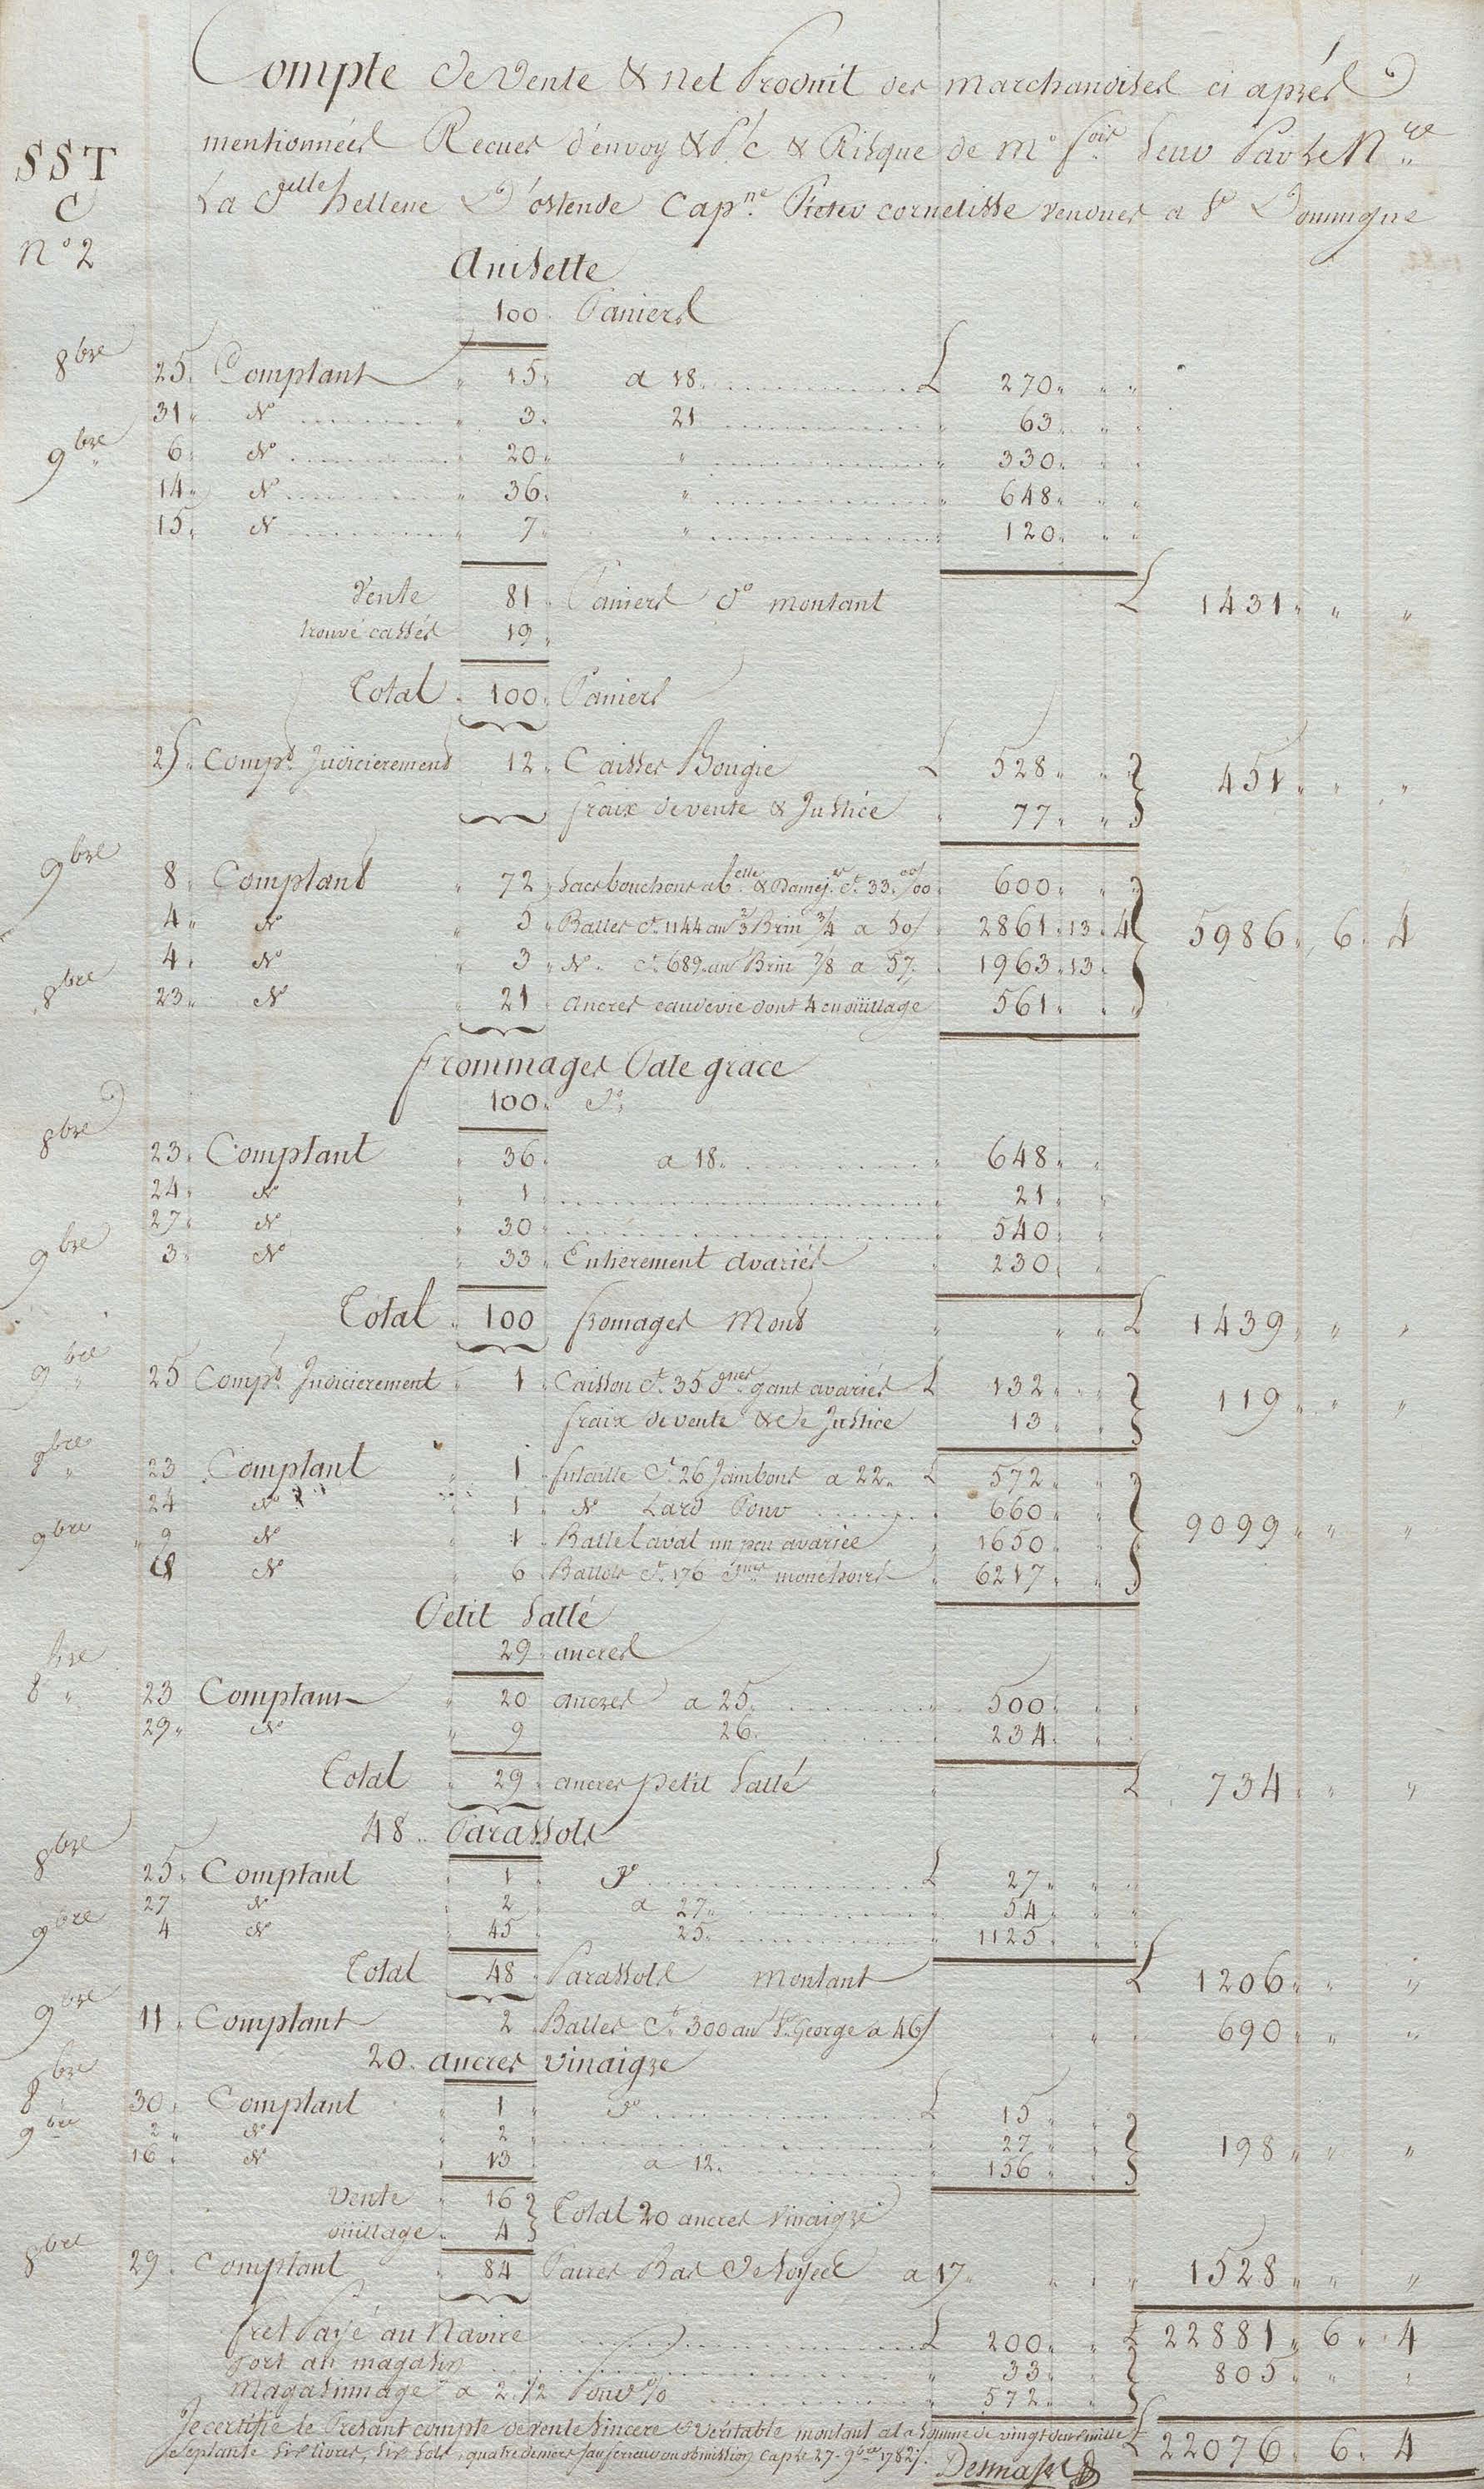 Compte de Vente & net Produit des marchandises ci aprés
mentionnées Recues d'envoy & P. C & Risque de
La Hellene D'ostende Cap.ne Pieter Cornelisse vendues a St Domingue
SST
C
N° 2
Anisette
100 Paniers
8bre 25 Comptant 15 a 18 £ 270 " "
31 D° 3 21 63 " "
9bre 6 D° 20 " 330 " "
14 D° 36 " 648 " "
15 D° 7 " 120 " "
Vente 81 Paniers d° montant £ 1431 " "
trouvé cassés 19
Total 100 Paniers
25 Compt Judicierement 12 Caisses Bougie £ 528 " " 451 " "
fraix de vente & Justice 77 " "
9bre 8 Comptant 72 Sacs bouchons a belle & Damej. 33 600 " "
4 D° 5 Balles Ct 1144 au 2/3 Brin 3/4 a 50/ 2861 13 4 5986 6 4
4 D° 3 D° Ct 689 au Brin 7/8 a 57 1963 13
8bre 23 D° 21 ancres eaudevie dont 4 en ouillage 561 " "
frommages Pate grace
100 d°
8bre 23 Comptant 36 a 18 648 " "
24 D° 1 21 " "
27 D° 30 540 " "
9bre 3 D° 33 Entierement avariés 230 " "
Total 100 fromages Mont £ 1439 " "
9bre 25 Compt Judicierement 1 Caisson Ct 35 dnes gans avariés £ 132 " " 119 " "
fraix de vente & de Justice 13 " "
8bre 23 Comptant 1 futaille Ct 26 Jambons a 22 £ 572 " "
24 D° 1 D° Lard Pour 660 " " 9099 " "
9bre 9 D° 1 Balle Laval un peu avariée 1650 " "
D° 6 Ballots Ct 176 dnes mouchoirs 6217 " "
Petit Sallé
29 ancres
8bre 23 Comptant 20 ancres a 25 500 " "
29 D° 9 26 234 " "
Total 29 ancres petit Sallé £ 734 " "
48 Parassols
8bre 25 Comptant 1 d° £ 27 " "
27 D° 2 a 27 54 " "
9bre 4 D° 45 25 1125 " "
Total 48 Parassols montant £ 1206 " "
9bre 11 Comptant 2 Balles Ct 300 au St George a 46/ 690 " "
20 ancres vinaigre
8bre 30 Comptant 1 d° £ 15 " "
9bre 2 D° 2 27 " " 198 " "
16 D° 13 a 12 156 " "
Vente 16
ouillage 4 Total 20 ancres Vinaigre
8bre 29 Comptant 84 Paires Bas de soyes a 17 1528 " "
fret Payé au Navire £ 200 " " £ 22881 6 4
Port au magasin 33 " " 805 " "
Magasinnage a 2 1/2 Pour % 572 " "
Je certifie le Présant compte de vente Sincere & Veritable montant a la Somme de vingt deux mille
Septante Six livres, Six Sols, quatre deniers Sauf erreur ou obmission Cap le 27 9bre 1782 £ 22076 6 4